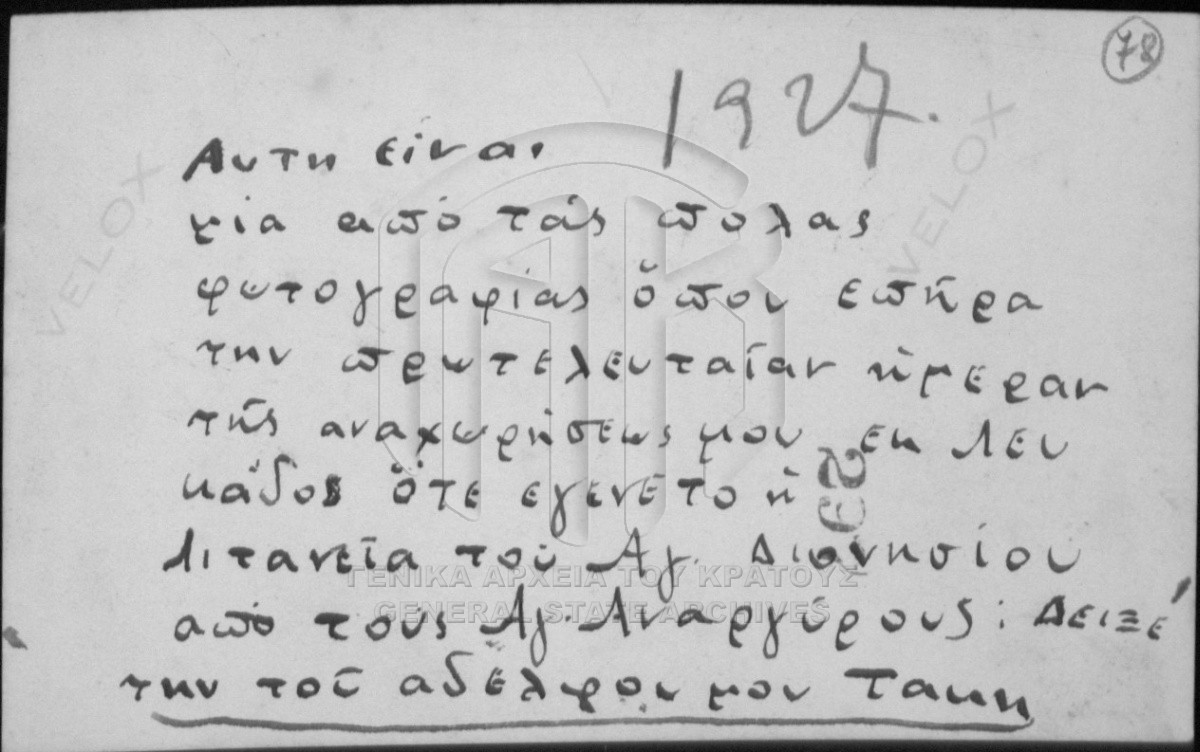 78
1927.
Αυτη είναι
μία από τάς πολας
φωτογραφίας ὅπου επῆρα
την πρωτελευταῖαν ἡμεραν
τῆς αναχωρήσεως μου εκ Λευ
κάδος ὅτε εγενετο ἡ
λιτανεῖα τοῦ Αγ. Διονησίου
από τους Αγ. Αναργύρους: Δειξέ
την τοῦ αδελφου μου Τακη
VELOX
VELOX
ΓΕΝΙΚΑ ΑΡΧΕΙΑ ΤΟΥ ΚΡΑΤΟΥΣ
GENERAL STATE ARCHIVES